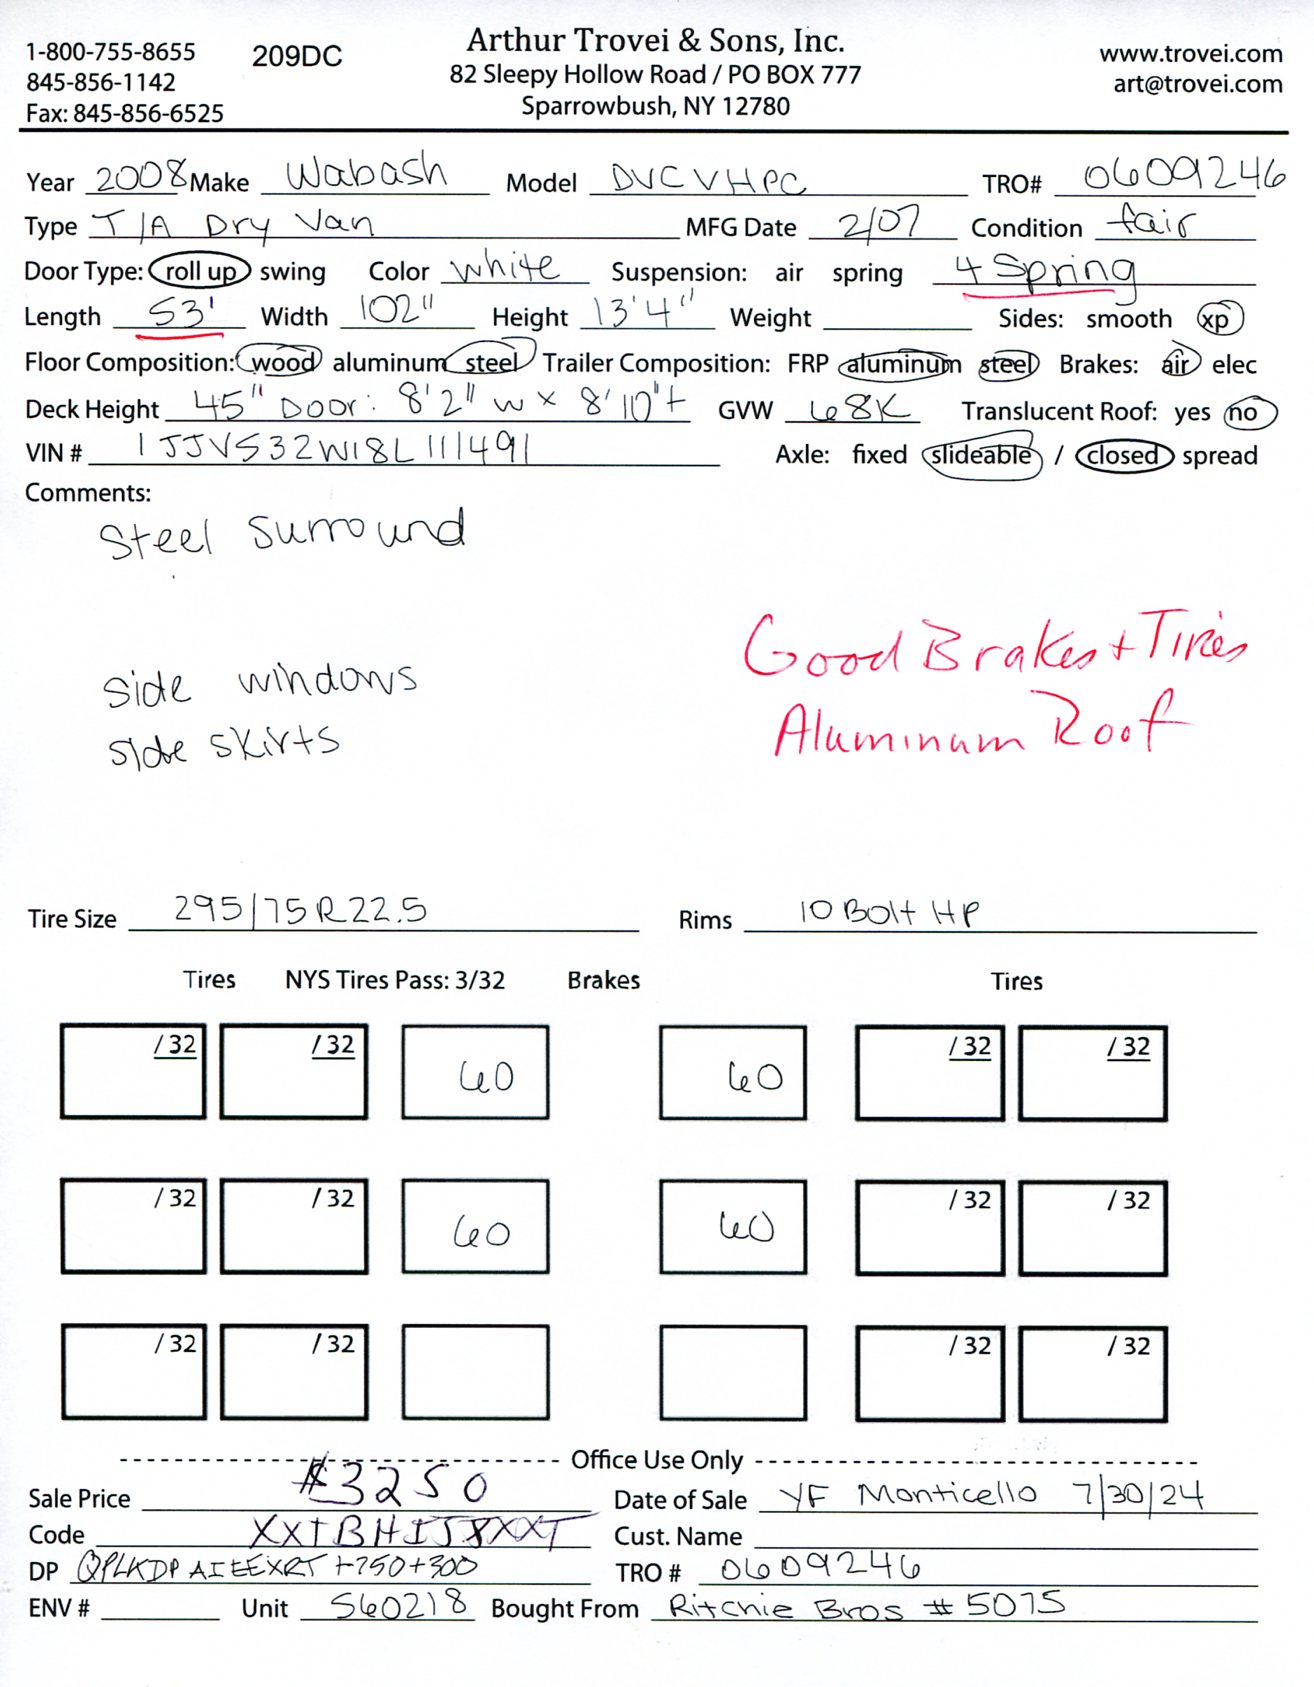 1-800-755-8655 209DC Arthur Trovei & Sons, Inc. www.trovei.com
845-856-1142 82 Sleepy Hollow Road / PO BOX 777 art@trovei.com
Fax: 845-856-6525 Sparrowbush, NY 12780
Year 2008 Make Wabash Model DVCVHPC TRO# 0609246
Type T/A Dry Van MFG Date 2/07 Condition fair
Door Type: roll up swing Color white Suspension: air spring 4 Spring
Length 53' Width 102" Height 13'4" Weight Sides: smooth xp
Floor Composition: wood aluminum steel Trailer Composition: FRP aluminum steel Brakes: air elec
Deck Height 45" Door: 8'2" w x 8'10"t GVW 68K Translucent Roof: yes no
VIN # 1JJV532W18L111491 Axle: fixed slideable / closed spread
Comments:
Steel surround
Good Brakes + Tires
side windows
Aluminum Roof
side skirts
Tire Size 295/75R22.5 Rims 10 Bolt HP
Tires NYS Tires Pass: 3/32 Brakes Tires
/32 /32 60 60 /32 /32
/32 /32 60 60 /32 /32
/32 /32 /32 /32
Office Use Only
Sale Price $3250 Date of Sale YF Monticello 7/30/24
Code Cust. Name
DP +750+300 TRO # 0609246
ENV # Unit 560218 Bought From Ritchie Bros # 5075